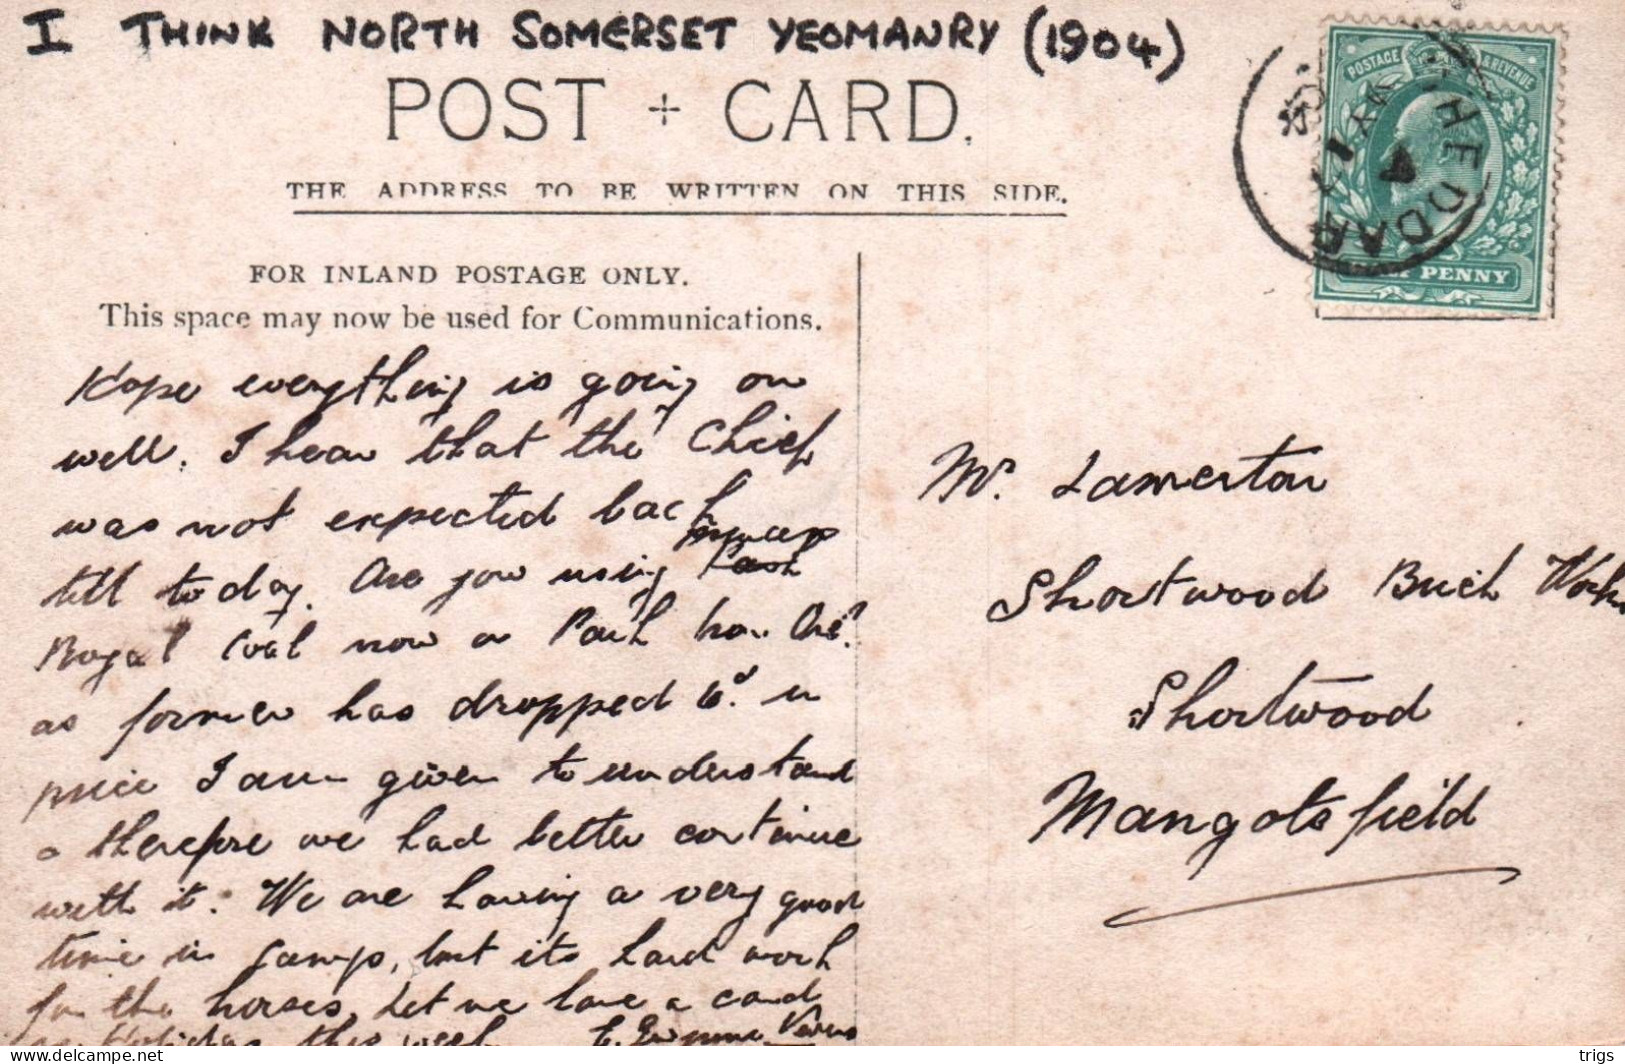 I THINK NORTH SOMERSET YEOMANRY (1904)
POST + CARD.
THE ADDRESS TO BE WRITTEN ON THIS SIDE.
POSTAGE & REVENUE
HEDDAR
A
MY 17
04
PENNY
FOR INLAND POSTAGE ONLY.
This space may now be used for Communications.
Hope everything is going on
well. I hear that the Chief
was not expected back
till today. Are you using
Coal now or Park
as former has dropped 6d. in
price I am given to understand
& therefore we had better continue
with it. We are having a very good
time in camp, but its hard work
for the horses, Let me have a card
this week
Mr. Lamerton
Shortwood Brick Works
Shortwood
Mangotsfield
trigs